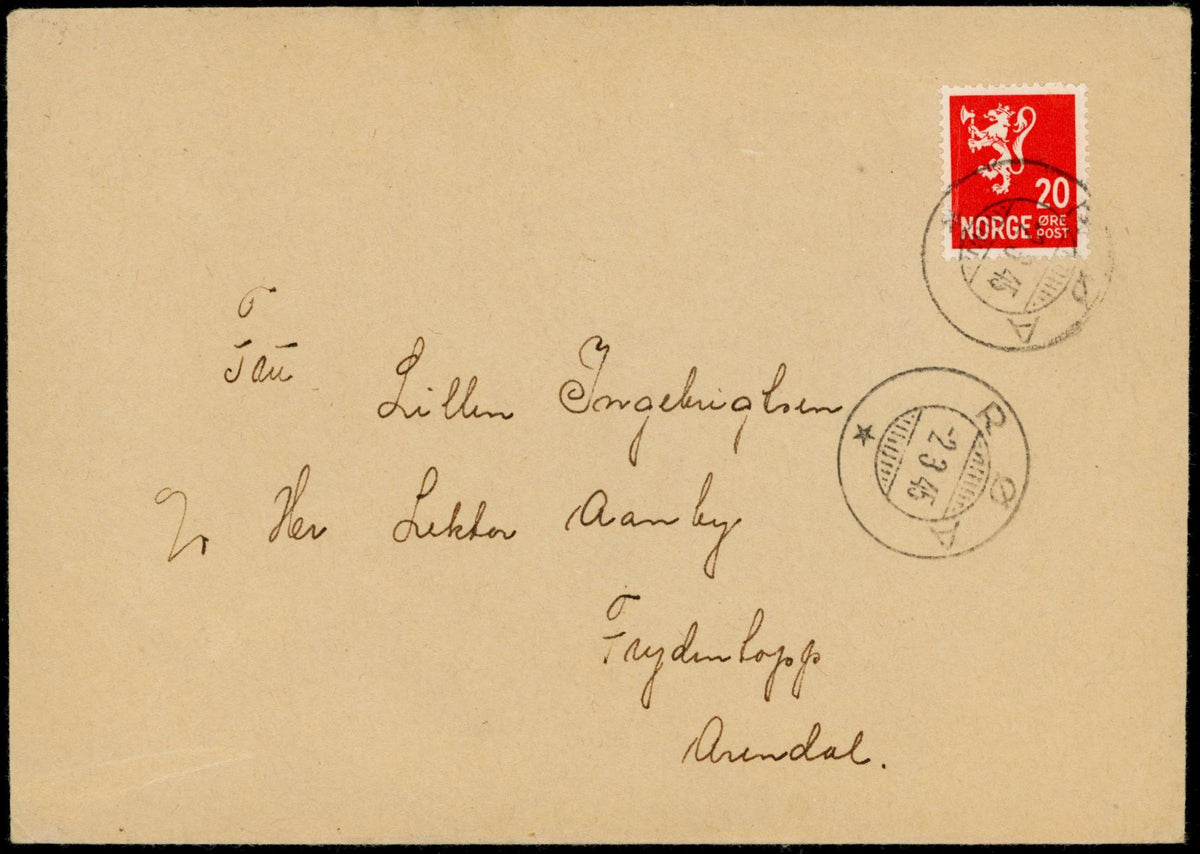 20
NORGE ØRE POST
RØD
-2.3.45
Frü Lillen Ingebrigtsen
Her Lektor Aanby
Frydentopp
Arendal.